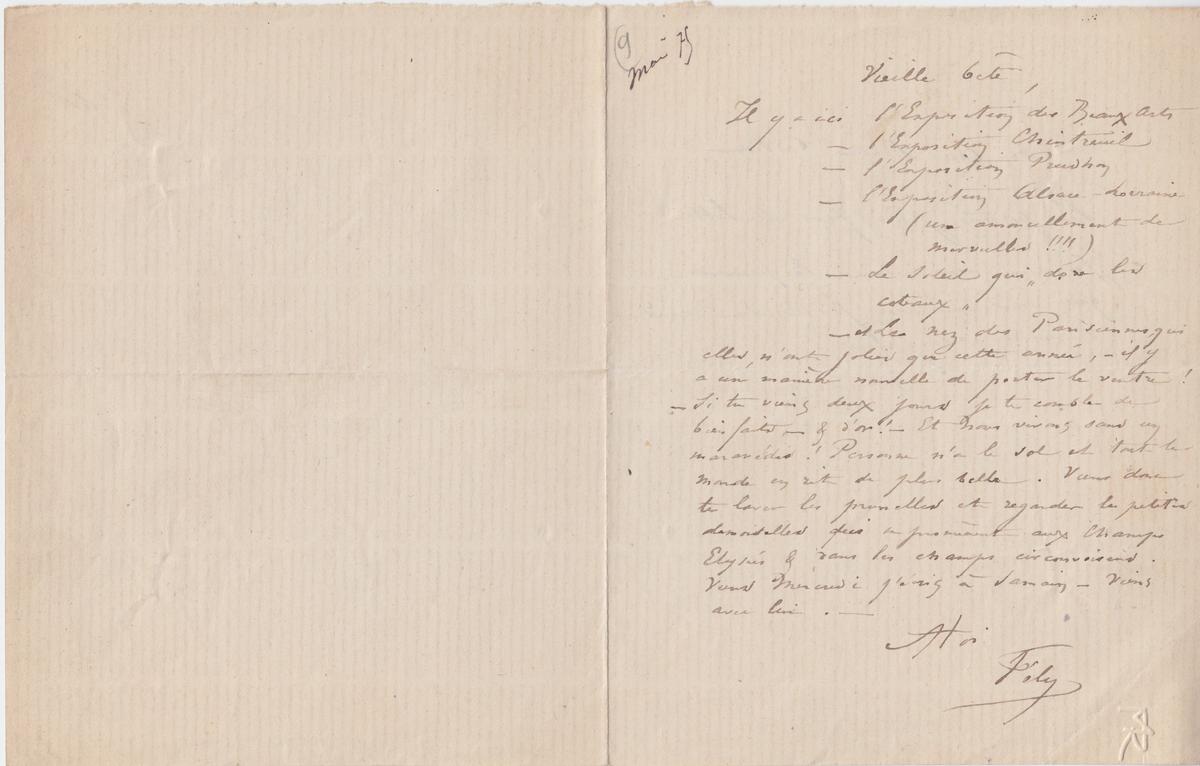 9
mai 75
Vieille bête,
Il y a ici l'Exposition des Beaux Arts
— l'Exposition Chintreuil
— l'Exposition Prudhon
— l'Exposition Alsace-Lorraine
(un amoncellement de
merveilles !!!!)
— Le Soleil qui „dore les
coteaux„
— et Les nez des Parisiennes qui
elles, n'ont jolies que cette année, — il y
a une manière nouvelle de porter le ventre !
— Si tu viens deux jours je te comble de
bienfaits — & d'or ! — Et nous vivons sans un
maravédis ! Personne n'a le sol et tout le
monde en rit de plus belle. Viens donc
te laver les prunelles et regarder les petites
demoiselles qui se promènent aux Champs
Elysées & dans les champs circonvoisins.
Viens Mercredi j'écris à Samain — Viens
avec lui. —
A toi
Fély